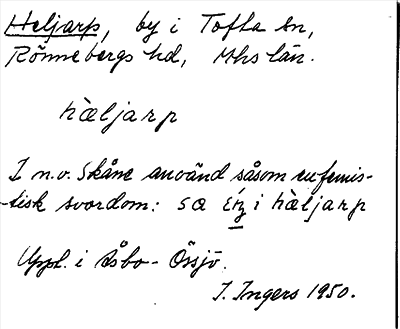 Heljarp, by i Tofta sn,
Rönnebergs hd, Mhs län.
hæljarp
I n.v. Skåne använd såsom eufemis-
-tisk svordom: sa i hæljarp
Uppl. i Åsbo-Össjö.
I. Ingers 1950.